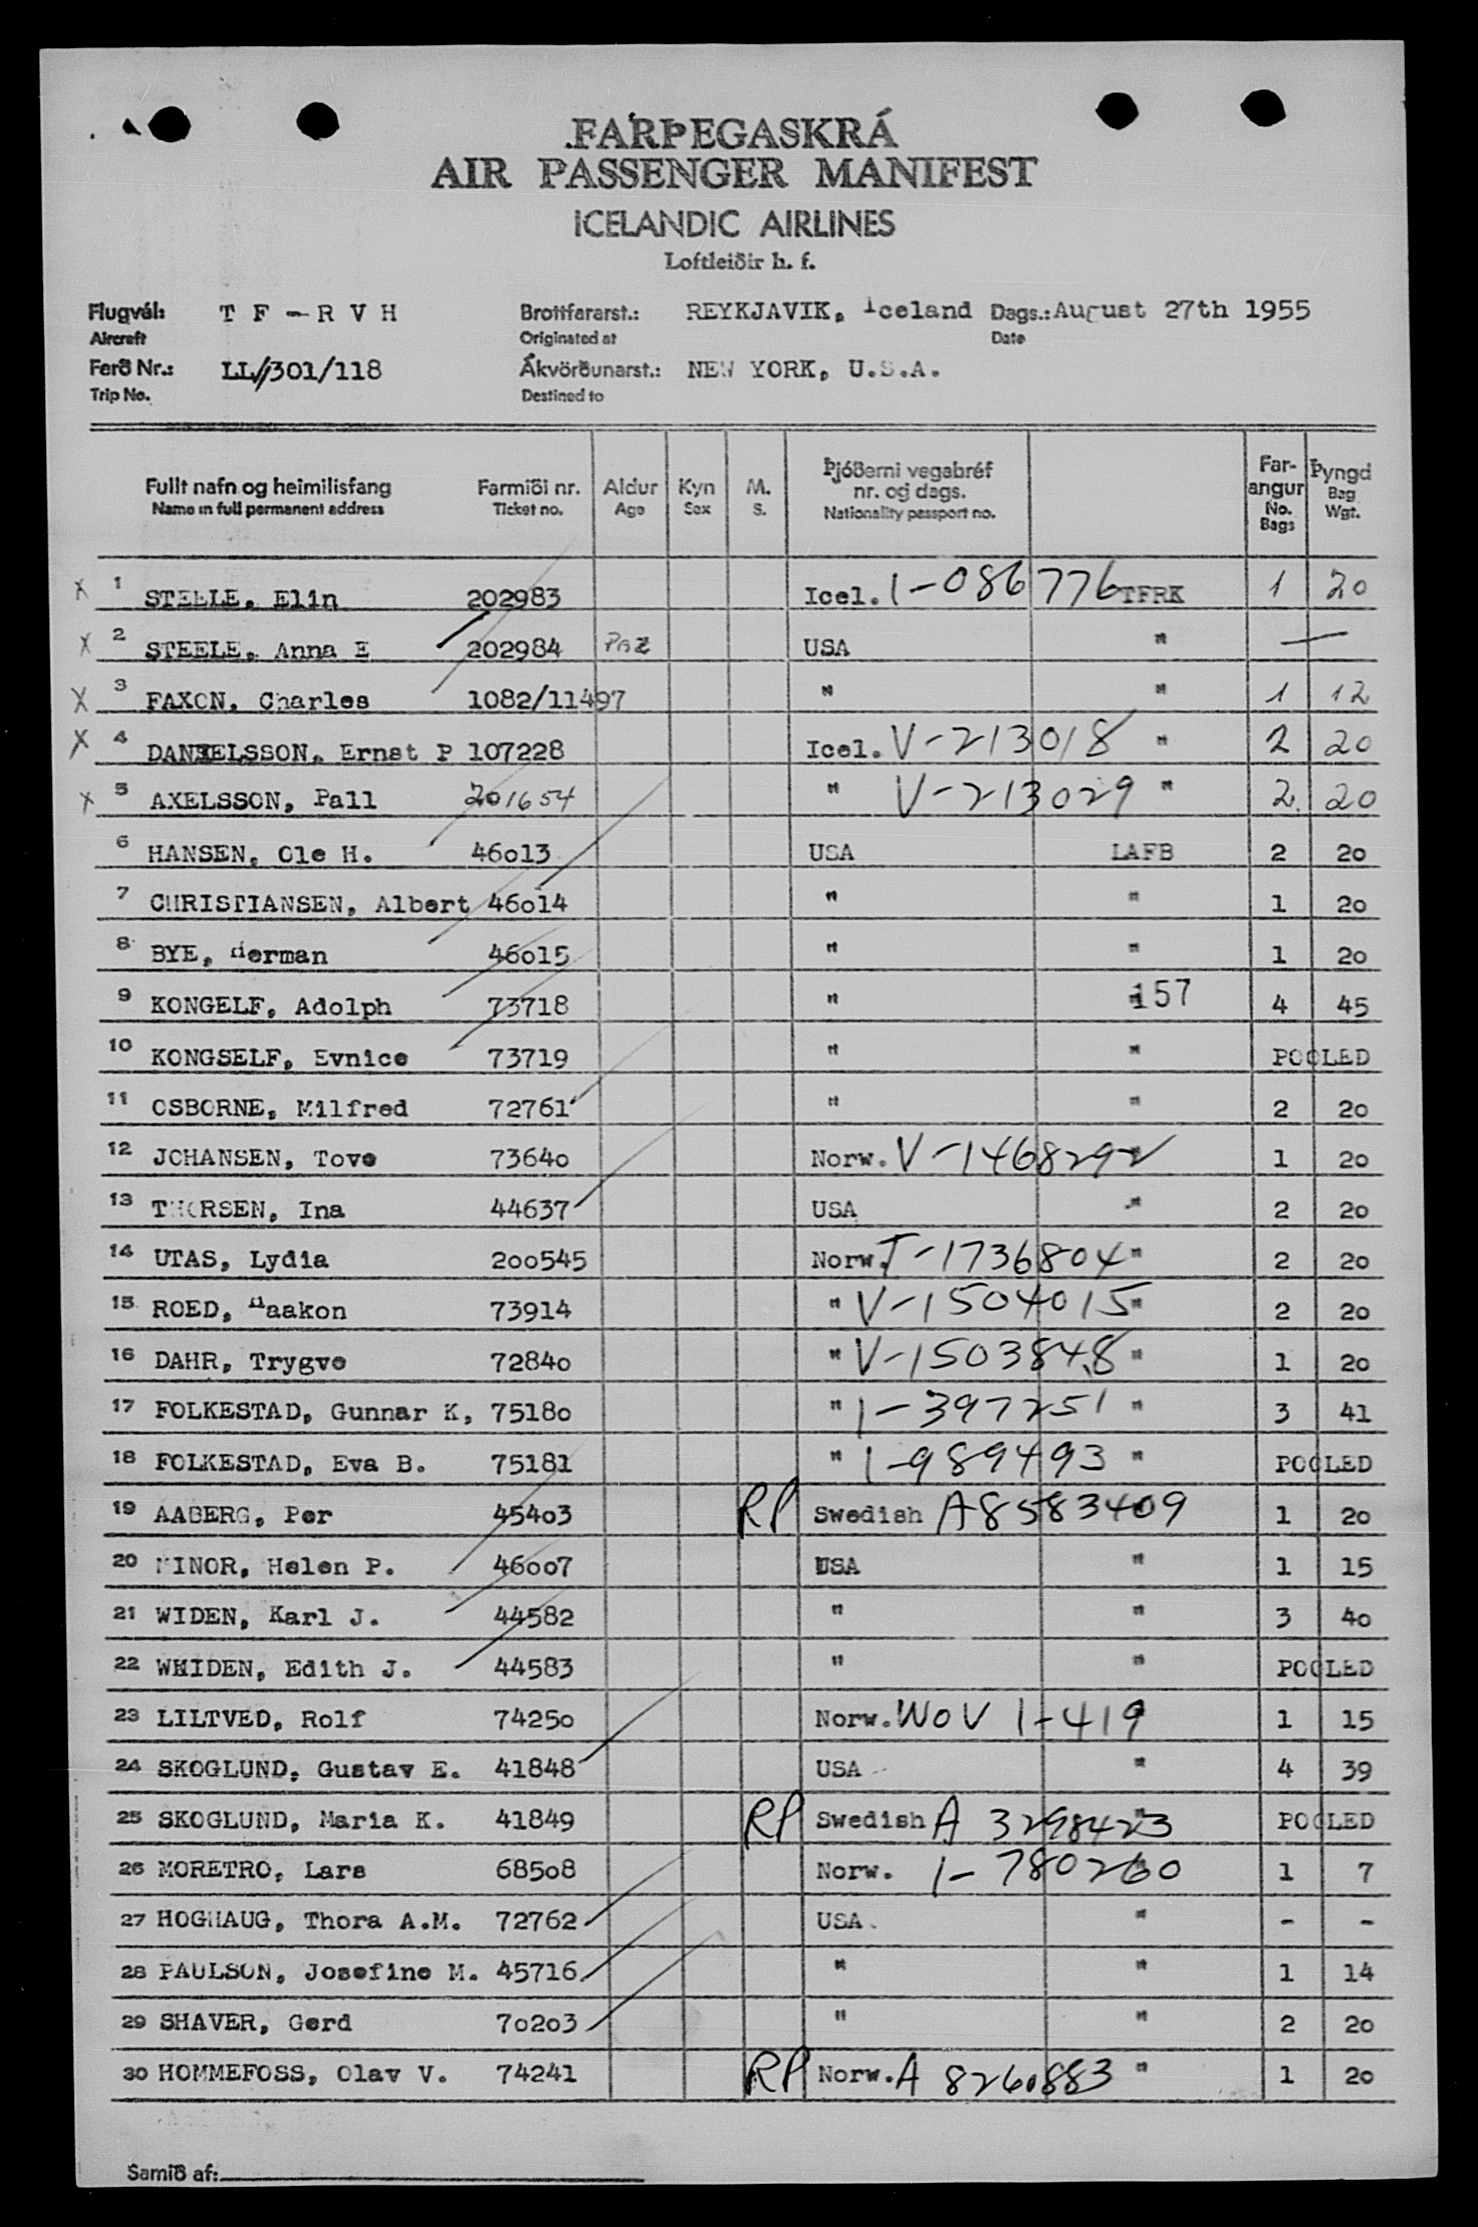 FARÞEGASKRÁ
AIR PASSENGER MANIFEST
ICELANDIC AIRLINES
Loftleiðir h. f.
Flugvél: T F - R V H Brottfararst.: REYKJAVIK, Iceland Dags.: August 27th 1955
Aircraft Originated at Date
Ferð Nr.: LL/301/118 Ákvörðunarst.: NEW YORK, U.S.A.
Trip No. Destined to
Fullt nafn og heimilisfang Farmiði nr. Aldur Kyn M. Þjóðerni vegabréf nr. og dags. Far-angur Þyngd
Name in full permanent address Ticket no. Age Sex S. Nationality passport no. No. Bags Bag Wgt.
X 1 STEELE, Elin 202983 Icel. 1-086776 TFRK 1 20
X 2 STEELE, Anna E 202984 USA " —
X 3 FAXON, Charles 1082/11497 " " 1 12
X 4 DANIELSSON, Ernst P 107228 Icel. V-213018 " 2 20
X 5 AXELSSON, Pall 201654 " V-213029 " 2 20
6 HANSEN, Ole H. 46013 USA LAFB 2 20
7 CHRISTIANSEN, Albert 46014 " " 1 20
8 BYE, Herman 46015 " " 1 20
9 KONGELF, Adolph 73718 " 157 4 45
10 KONGSELF, Evnice 73719 " " POOLED
11 OSBORNE, Milfred 72761 " " 2 20
12 JOHANSEN, Tove 73640 Norw. V-1468292 1 20
13 THORSEN, Ina 44637 USA " 2 20
14 UTAS, Lydia 200545 Norw. T-1736804 " 2 20
15 ROED, Haakon 73914 " V-1504015 " 2 20
16 DAHR, Trygve 72840 " V-1503848 " 1 20
17 FOLKESTAD, Gunnar K, 75180 " 1-397251 " 3 41
18 FOLKESTAD, Eva B. 75181 " 1-989493 " POOLED
19 AABERG, Per 45403 RP Swedish A8583409 1 20
20 MINOR, Helen P. 46007 USA " 1 15
21 WIDEN, Karl J. 44582 " " 3 40
22 WHIDEN, Edith J. 44583 " " POOLED
23 LILTVED, Rolf 74250 Norw. WOV 1-419 1 15
24 SKOGLUND, Gustav E. 41848 USA " 4 39
25 SKOGLUND, Maria K. 41849 RP Swedish A 3298423 POOLED
26 MORETRO, Lars 68508 Norw. 1-780260 1 7
27 HOGHAUG, Thora A.M. 72762 USA " - -
28 PAULSON, Josefine M. 45716 " " 1 14
29 SHAVER, Gerd 70203 " " 2 20
30 HOMMEFOSS, Olav V. 74241 RP Norw. A 8260883 " 1 20
Samið af: